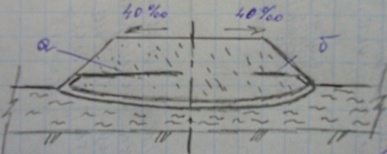 40‰ 40‰
а б